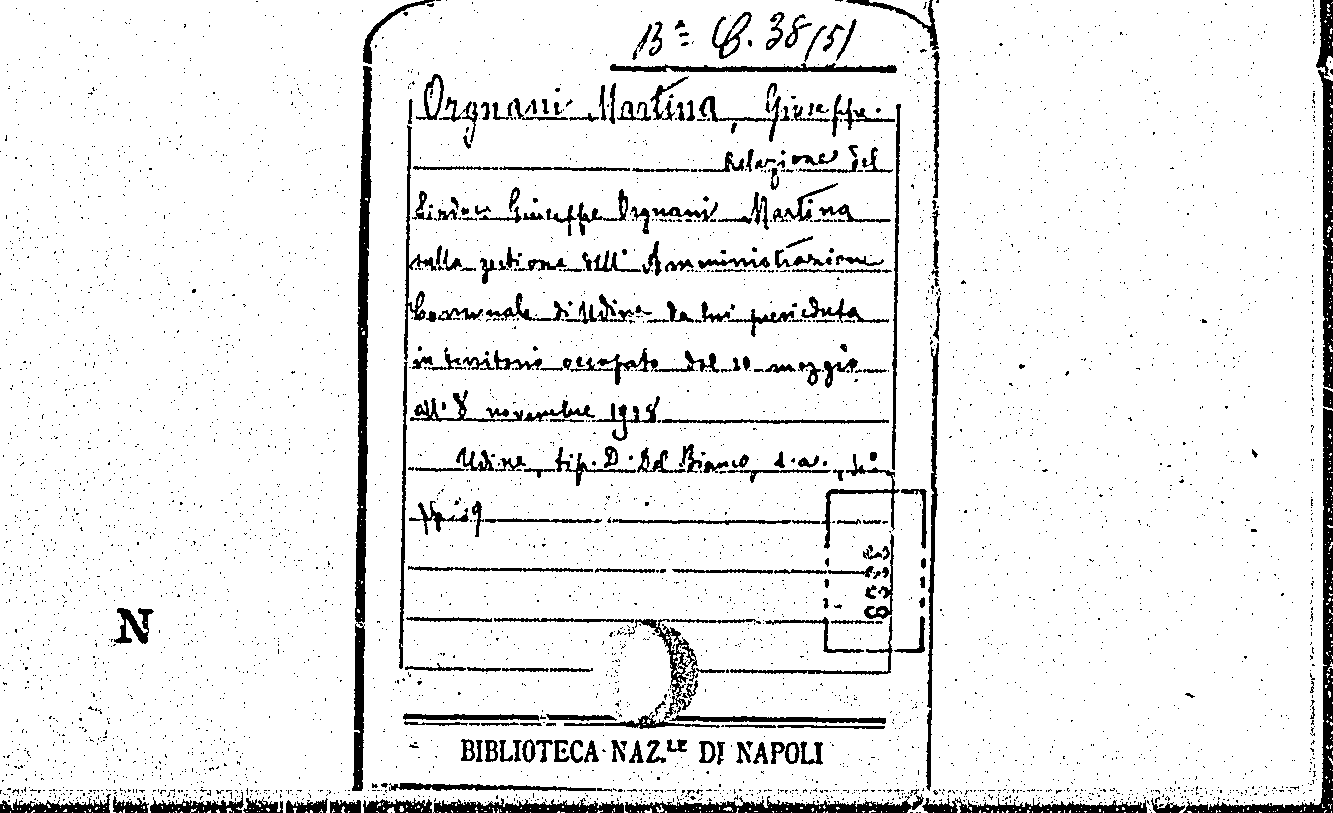 Bª C. 38 (5)
Orgnani Martina, Giuseppe.
Relazione del
Sindaco Giuseppe Orgnani Martina
sulla gestione dell' Amministrazione
Comunale di Udine da lui presieduta
in territorio occupato dal 20 maggio
all' 8 novembre 1918
Udine, tip. D. Del Bianco, s. a., in
N
BIBLIOTECA NAZ.LE DI NAPOLI